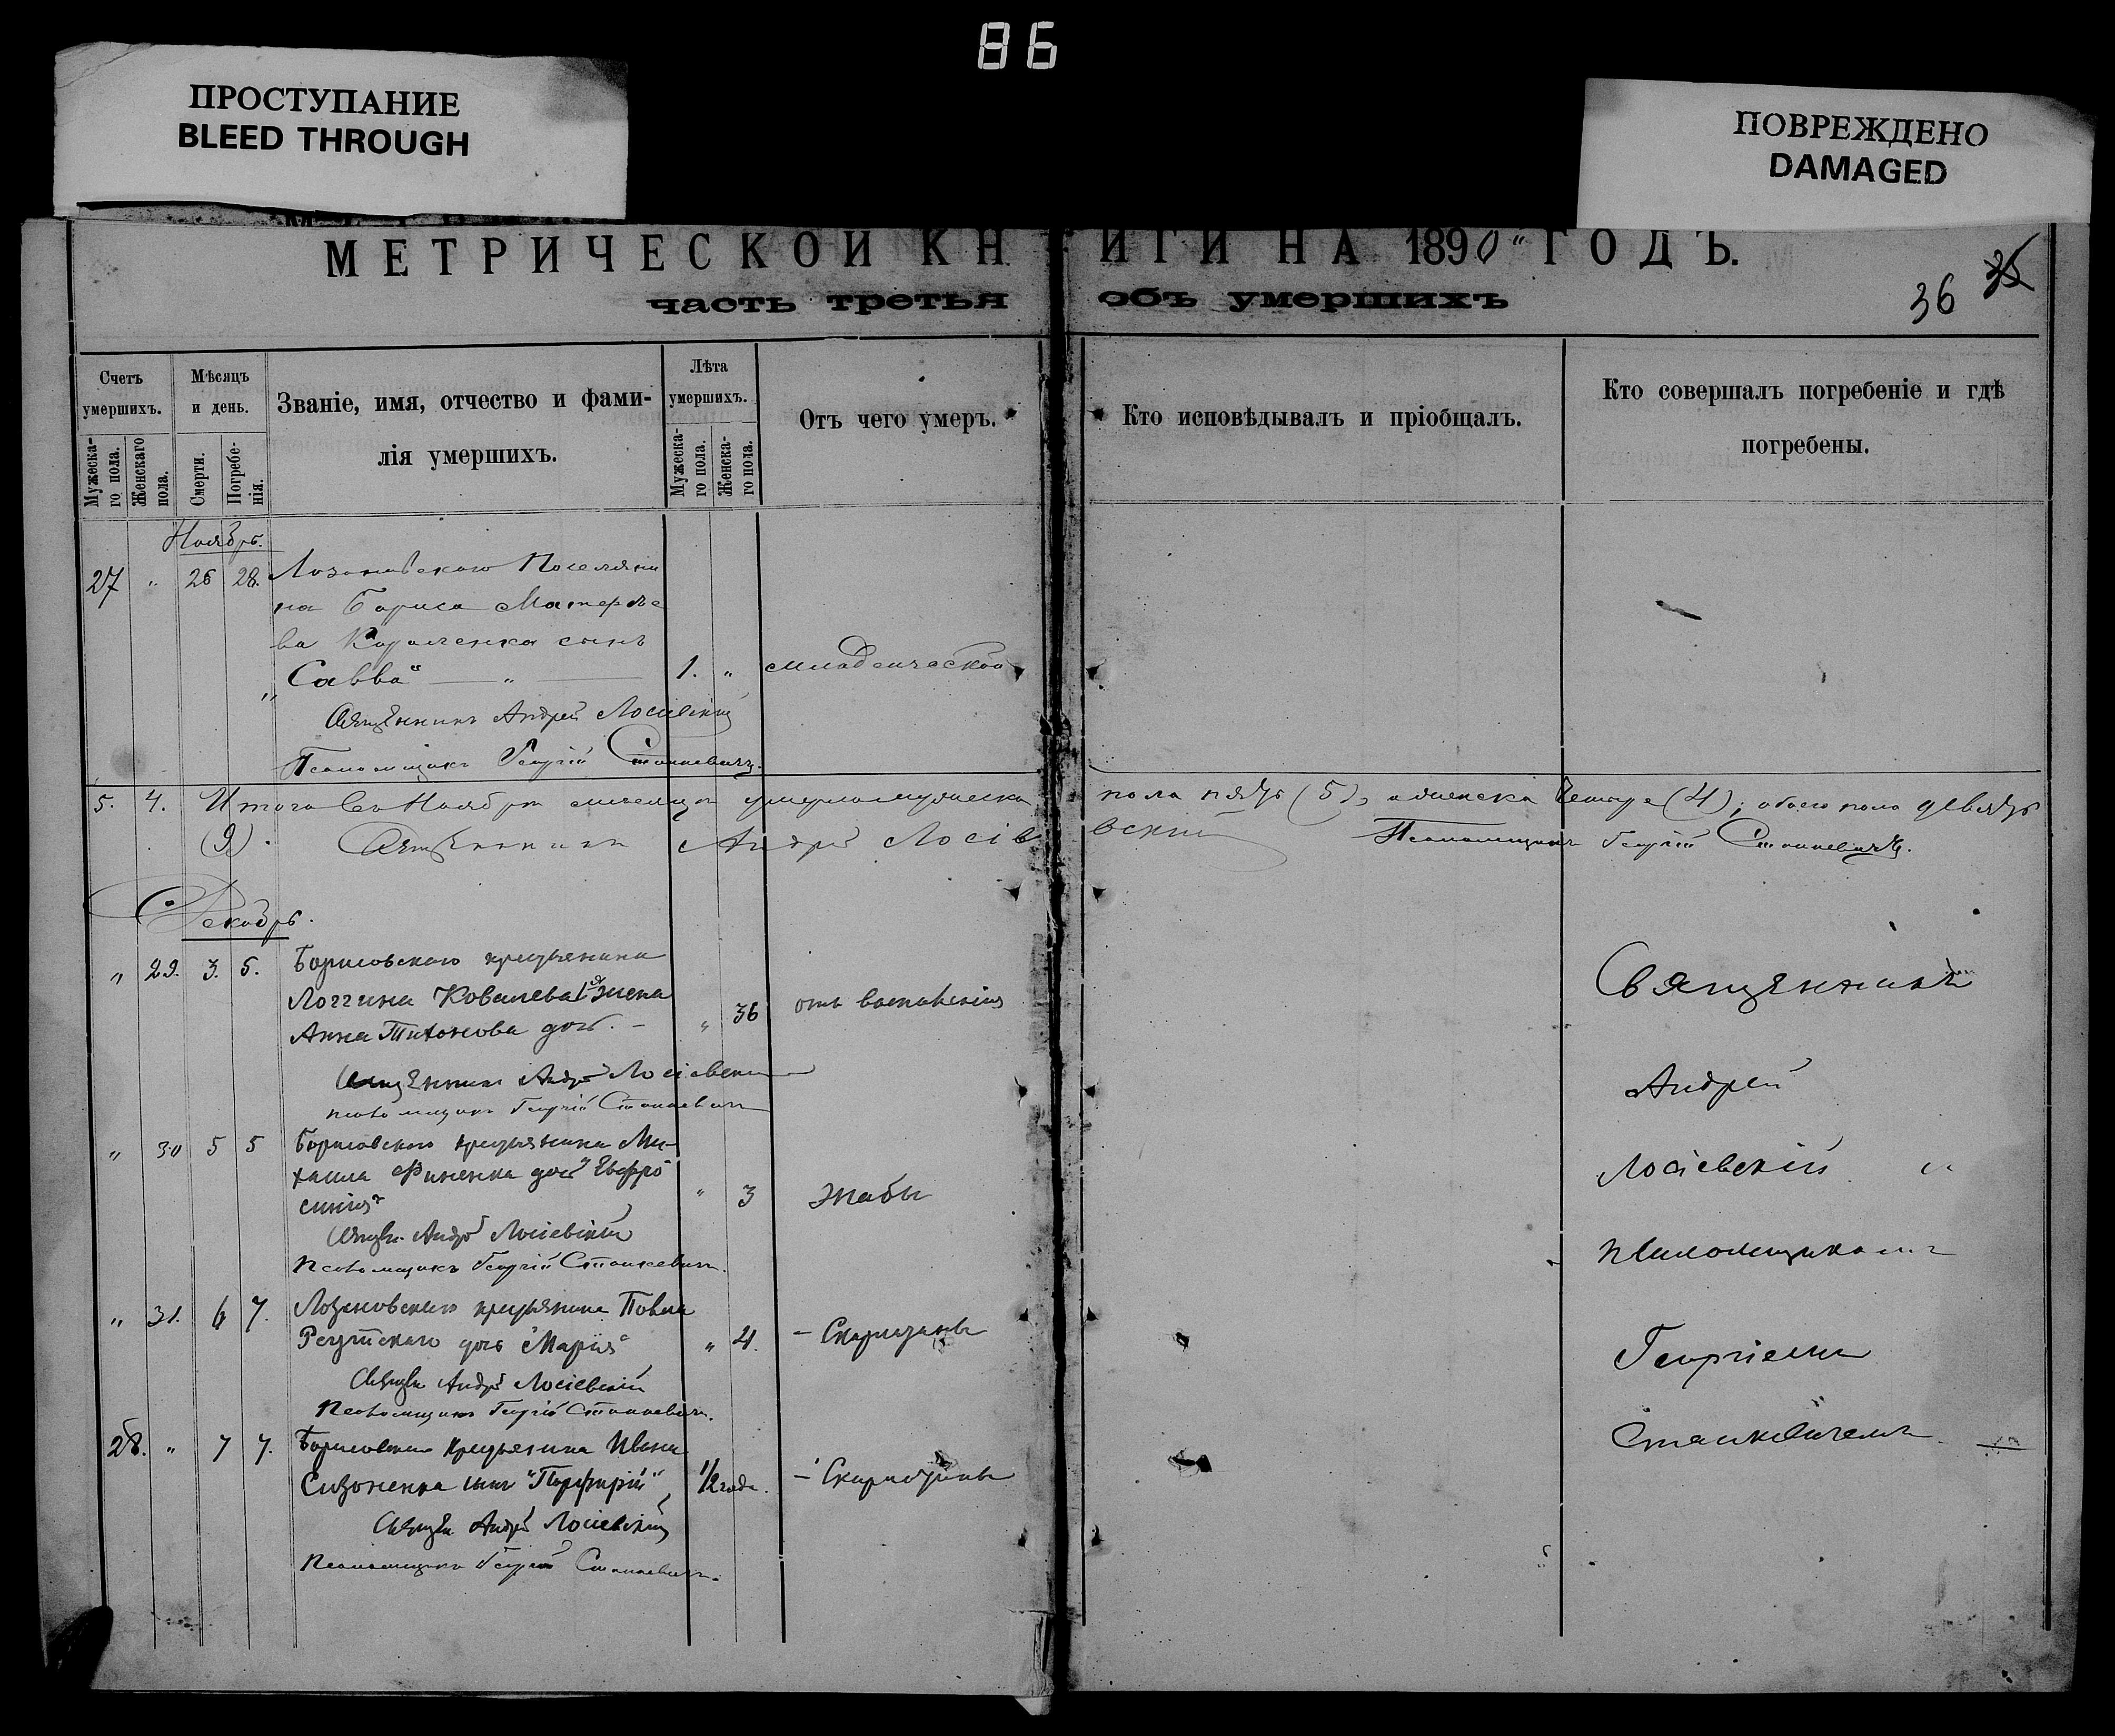 86
ПРОСТУПАНИЕ
BLEED THROUGH
ПОВРЕЖДЕНО
DAMAGED
МЕТРИЧЕСКОЙ КНИГИ НА 1890 ГОДЪ.
часть третья объ умершихъ
36 35
Счетъ умершихъ.
Мужескаго пола.
Женскаго пола.
Мѣсяцъ и день.
Смерти.
Погребенія.
Званіе, имя, отчество и фамилія умершихъ.
Лѣта умершихъ.
Мужескаго пола.
Женскаго пола.
Отъ чего умеръ.
Кто исповѣдывалъ и пріобщалъ.
Кто совершалъ погребеніе и гдѣ погребены.
Ноябрь.
27 " 26 28. Поселяни
на Бориса
сынъ
"Савва" — " — 1. " младенческой
Священникъ Андрей Лосіевскій
Псаломщикъ Георгій Станкевичъ.
5. 4. Итого въ Ноябрѣ мѣсяцѣ умерло мужеска пола пять (5), а женска четыре (4); обоего пола девять
(9). Священникъ Андрей Лосіевскій Псаломщикъ Георгій Станкевичъ.
Декабрь.
" 29. 3. 5. Борисовскаго крестьянина
Логгина Ковалева жена
Анна Тихонова дочь. — " 36 отъ воспаленія
Священникъ Андрей Лосіевскій
псаломщикъ Георгій Станкевичъ
" 30 5 5 Борисовскаго крестьянина Ми-
хаила Финенка дочь "Евфро
синія" " 3 жабы
Андрей Лосіевскій
Псаломщикъ Георгій Станкевичъ.
" 31. 6 7. крестьянина Павла
дочь "Марія" " 4. — Скарлатины
Андрей Лосіевскій
Псаломщикъ Георгій Станкевичъ.
28. " 7 7. крестьянина Ивана
Сизоненка сынъ "Порфирій" 1/2 года. — Скарлатины
Андрей Лосіевскій
Псаломщикъ Георгій Станкевичъ.
Священникъ
Андрей
Лосіевскій "
псаломщикомъ
Георгіемъ
Станкевичемъ —